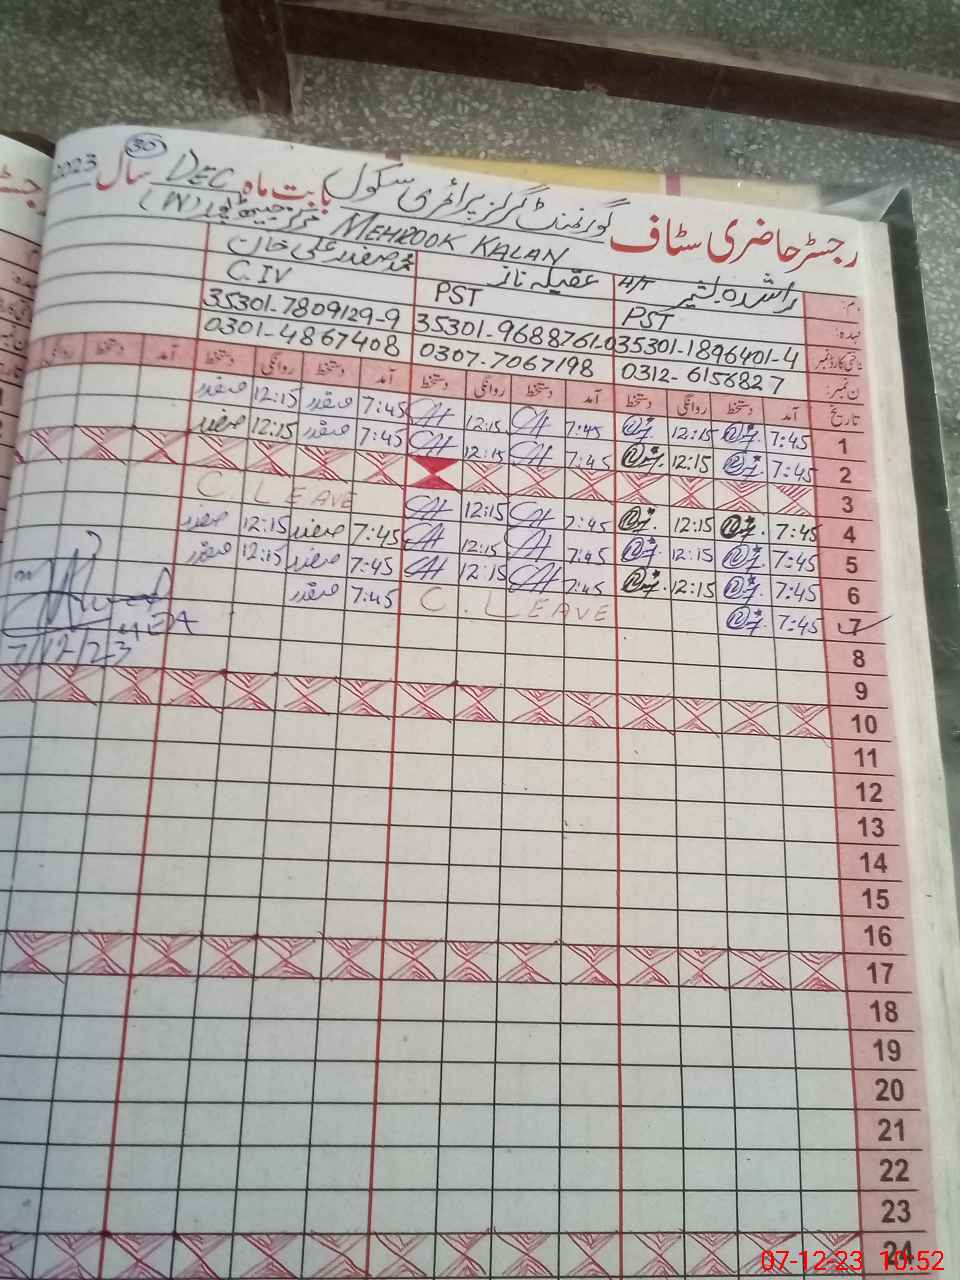 رجسٹر حاضری سٹاف گورنمنٹ گرلز پرائمری سکول بابت ماہ DEC سال 2023
30
MEHROOK KALAN مرکز (W)
A/T عقیلہ ناز محمد صفدر علی خان
PST PST C.IV
35301-1896401-4 35301-9688761-0 35301-7809129-9
0312-6156827 0307-7067198 0301-4867408
تاریخ آمد دستخط روانگی دستخط آمد دستخط روانگی دستخط آمد دستخط روانگی دستخط آمد دستخط روانگی
1 7:45 12:15 7:45 12:15 7:45 صفدر 12:15 صفدر
2 7:45 12:15 7:45 12:15 7:45 صفدر 12:15 صفدر
3
4 7:45 12:15 7:45 12:15 C. LEAVE
5 7:45 12:15 7:45 12:15 7:45 صفدر 12:15 صفدر
6 7:45 12:15 7:45 12:15 7:45 صفدر 12:15 صفدر
7 7:45 C. LEAVE 7:45 صفدر
AEA
7/12/23
8
9
10
11
12
13
14
15
16
17
18
19
20
21
22
23
24
07-12-23 10:52